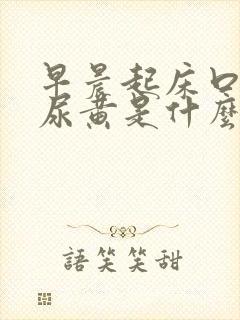 早晨起床口
尿黄是什麼
語笑笑甜